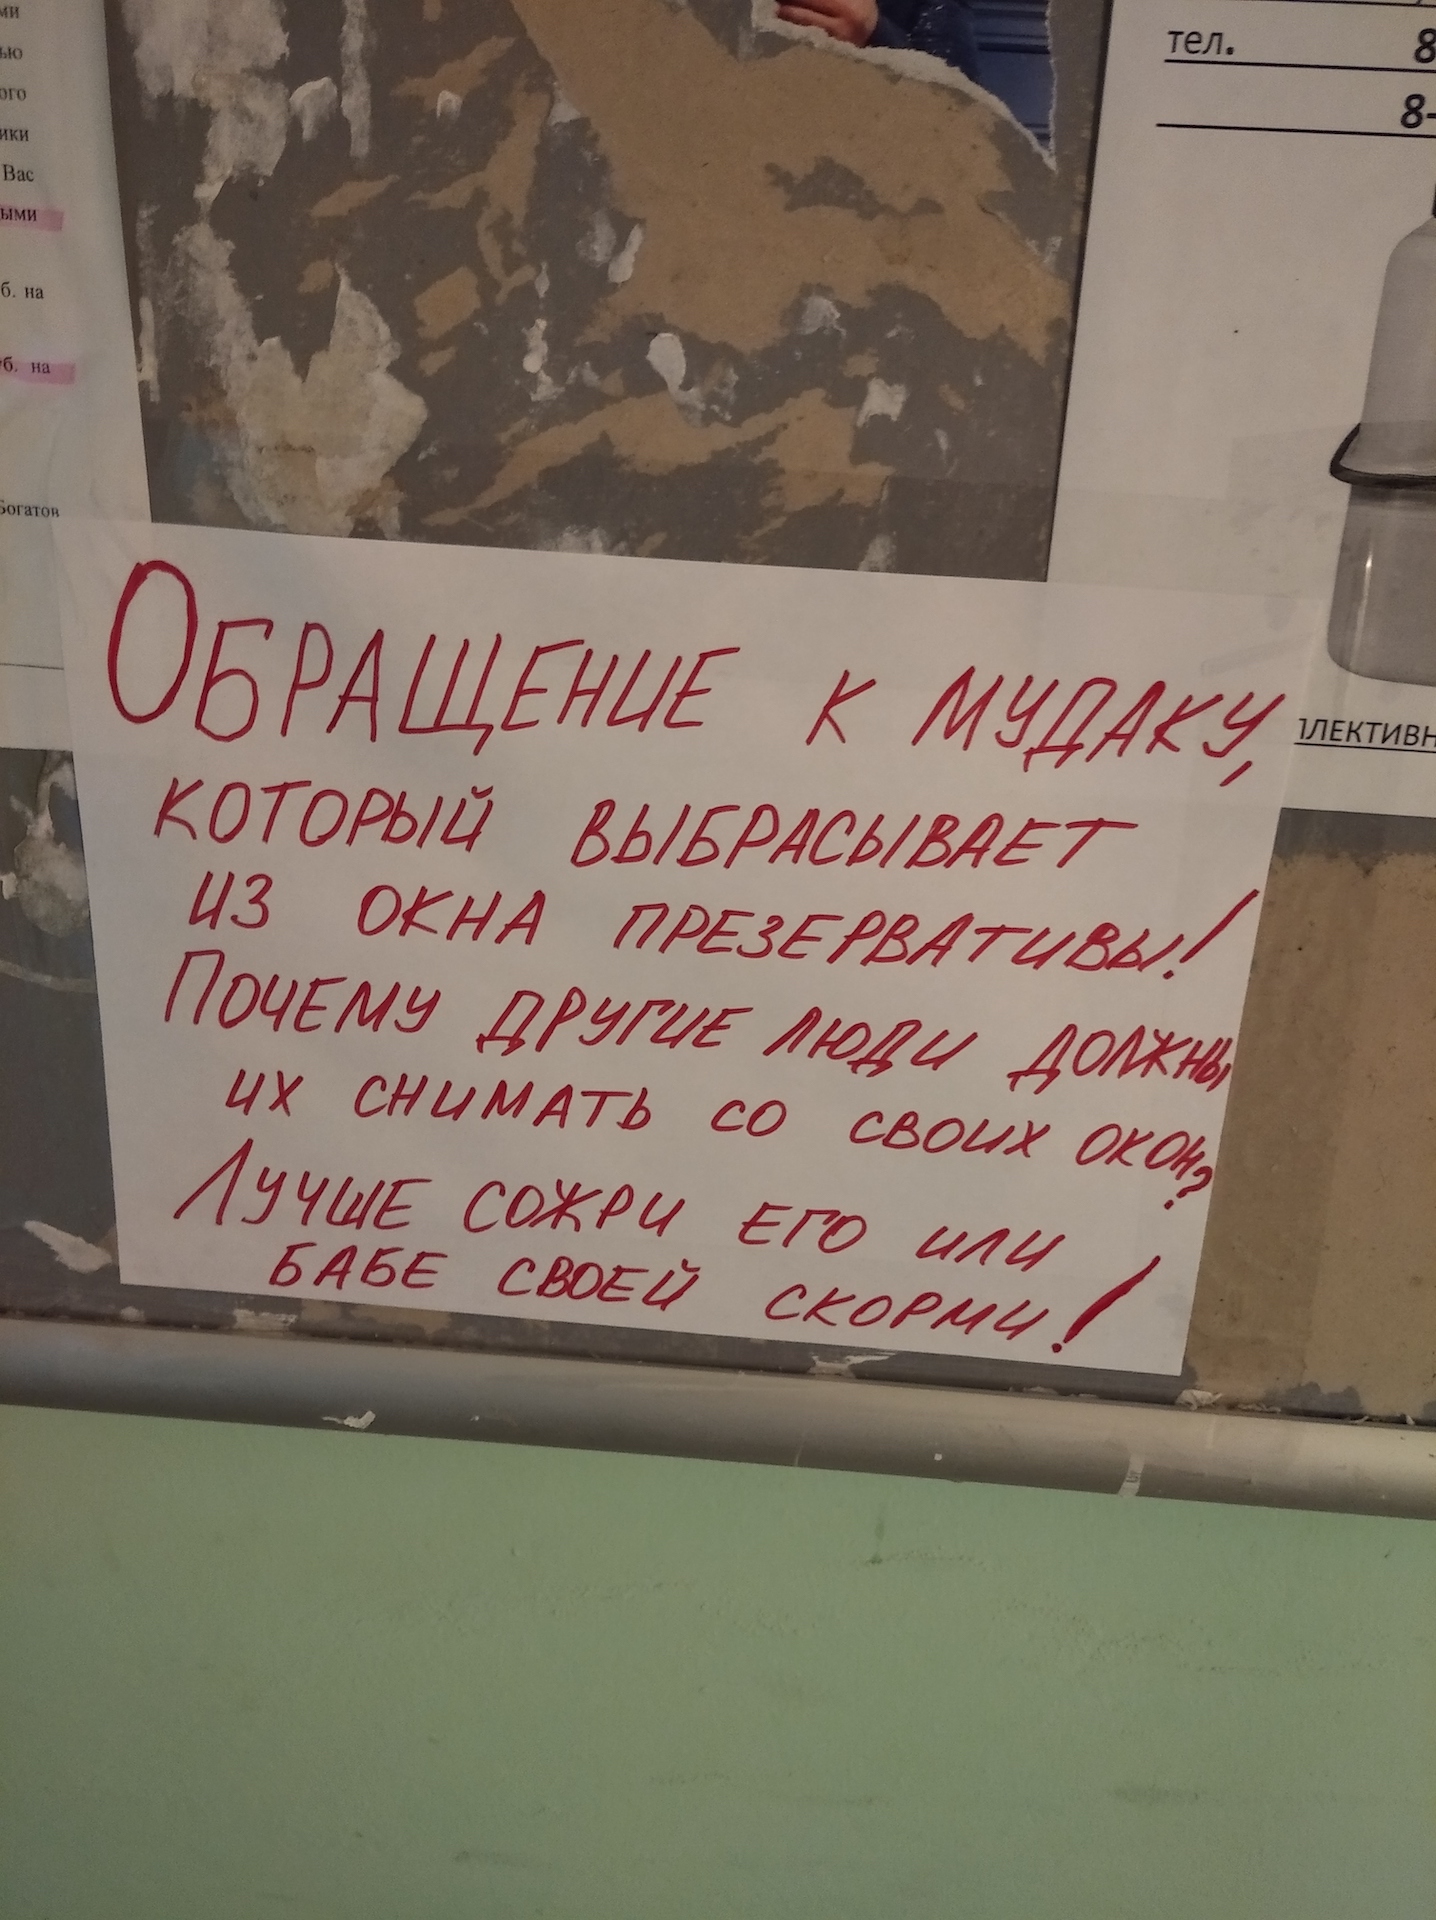 ми
ью
ого
ики
Вас
ыми
б. на
уб. на
Богатов
тел. 8
8-
ЛЛЕКТИВН
ОБРАЩЕНИЕ К МУДАКУ,
КОТОРЫЙ ВЫБРАСЫВАЕТ
ИЗ ОКНА ПРЕЗЕРВАТИВЫ!
ПОЧЕМУ ДРУГИЕ ЛЮДИ ДОЛЖНЫ
ИХ СНИМАТЬ СО СВОИХ ОКОН?
ЛУЧШЕ СОЖРИ ЕГО ИЛИ
БАБЕ СВОЕЙ СКОРМИ!